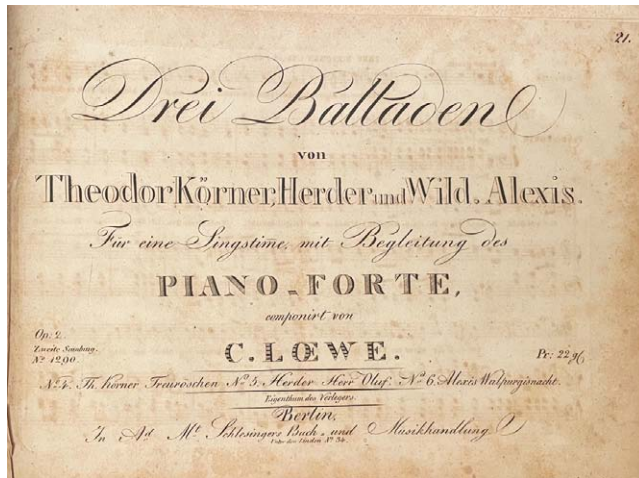 21.
Drei Balladen
von
Theodor Körner, Herder und Wild. Alexis.
Für eine Singstim̅e mit Begleitung des
PIANO-FORTE,
componirt von
C. LŒWE.
Op: 2.
Zweite Sam̅lung.
No. 1290.
Pr: 22
No. 4. Th. körner Treuröschen No. 5. Herder Herr Oluf. No. 6. Alexis Walpurgisnacht.
Eigenthum des Verlegers
Berlin,
In Ad. Mt. Schlesingers Buch- und Musikhandlung
Unter den Linden No. 34.